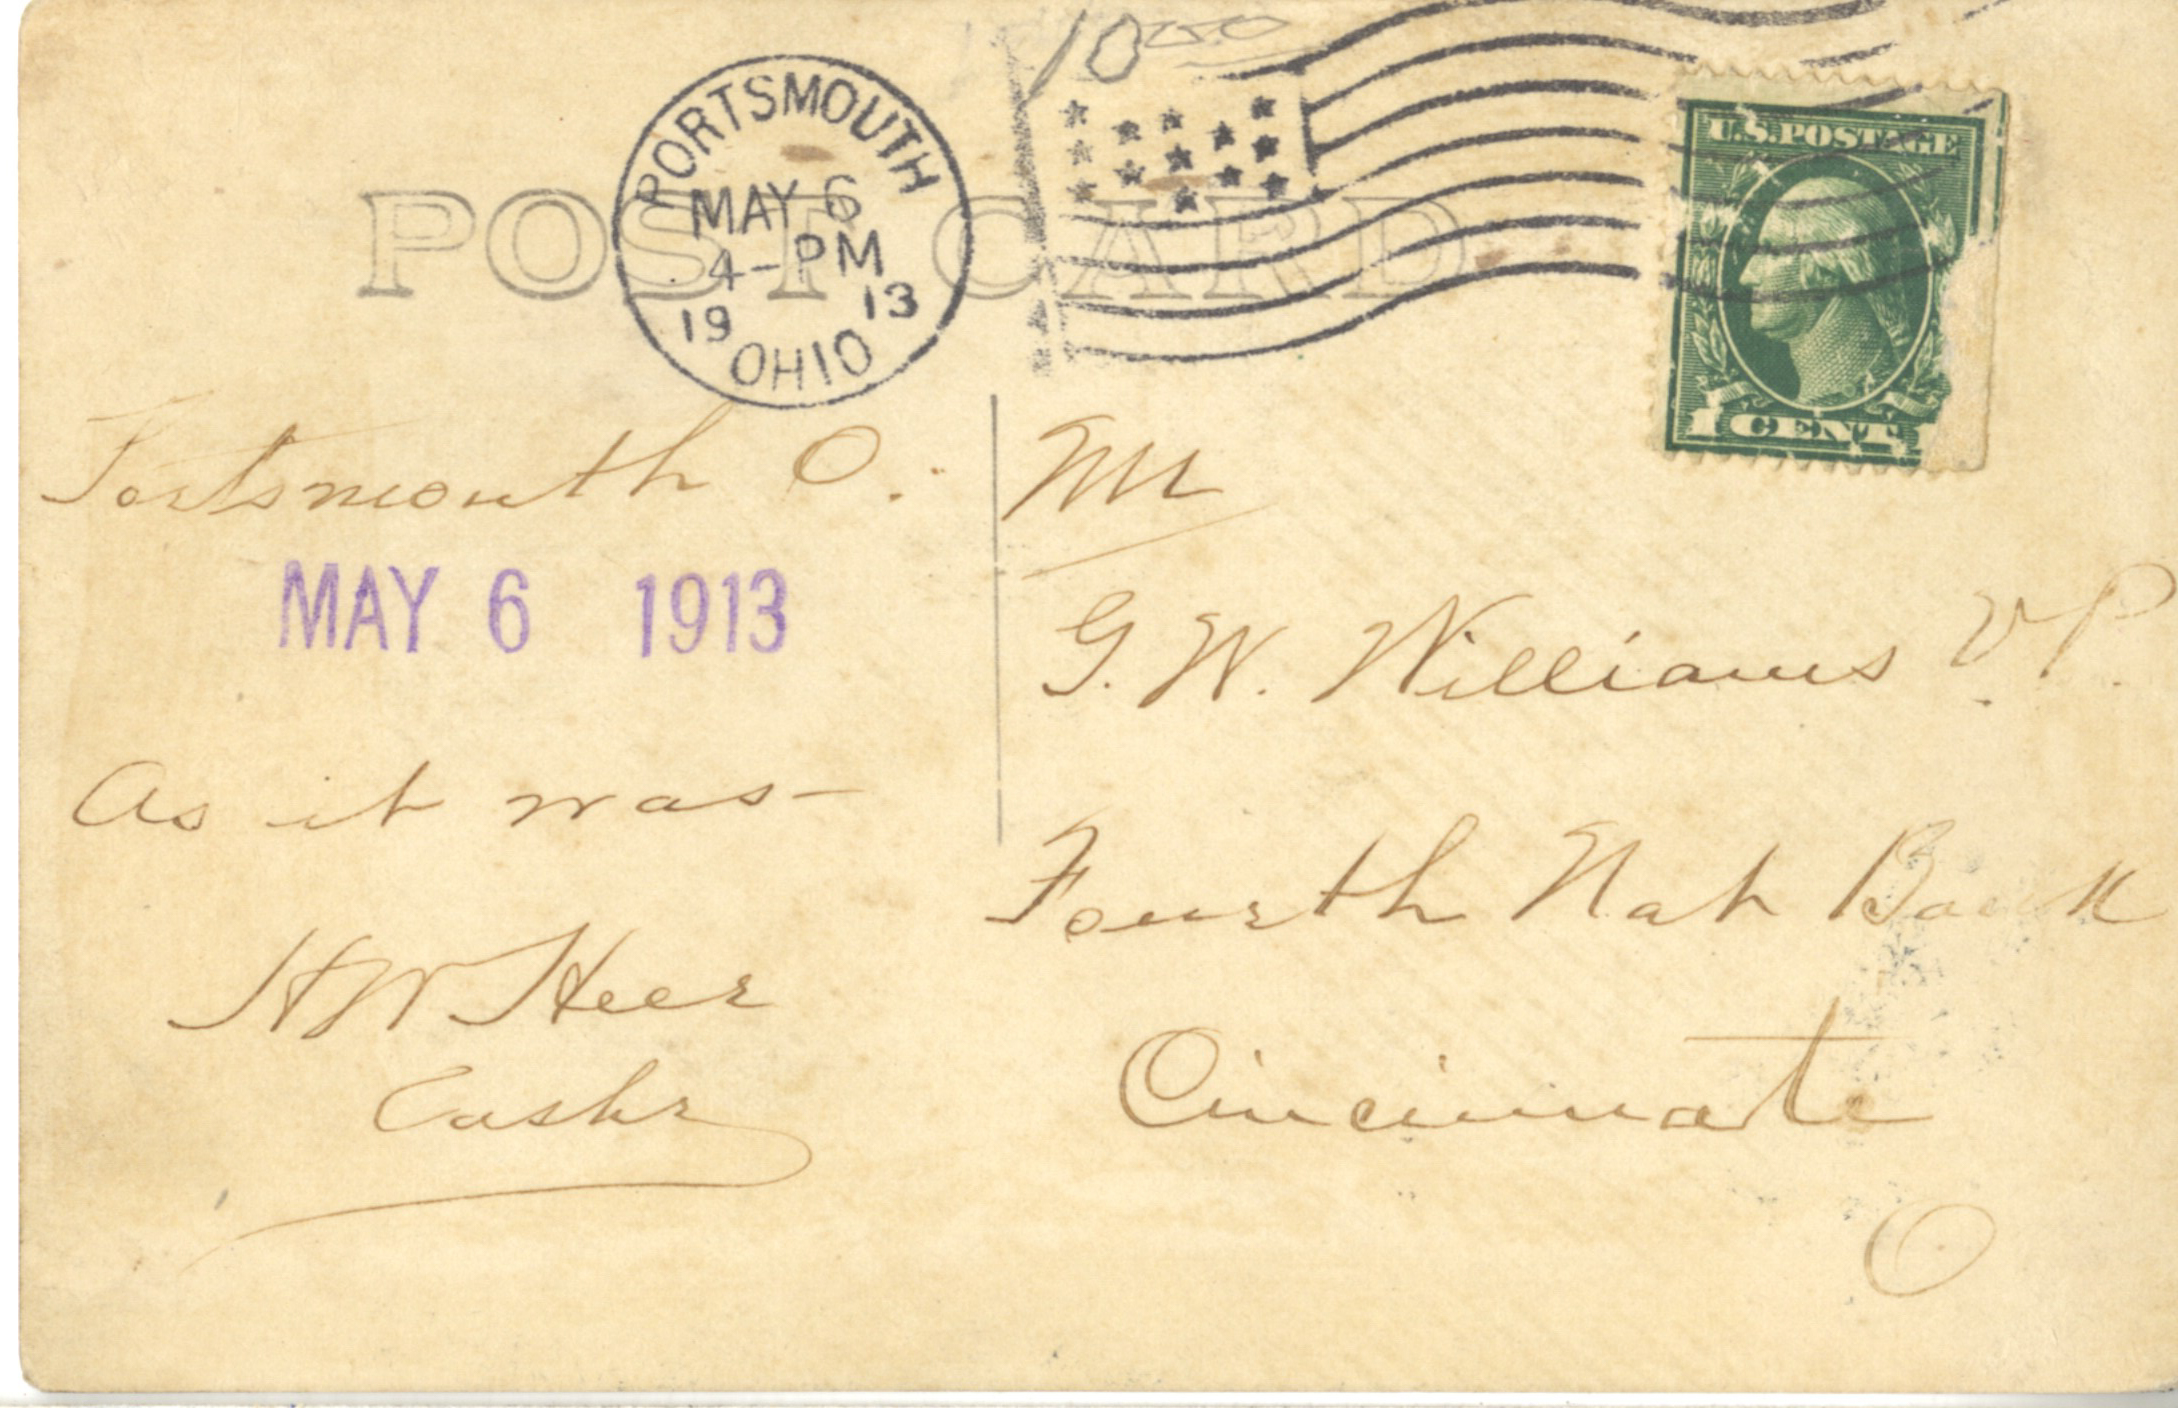 1000
PORTSMOUTH
MAY 6
4-PM
19 13
OHIO
POST CARD
U.S. POSTAGE
1 CENT 1
Portsmouth O.
MAY 6 1913
As it was—
HW Heer
Cashr
Mr
G. W. Williams V.P.
Fourth Nat Bank
Cincinnati
O